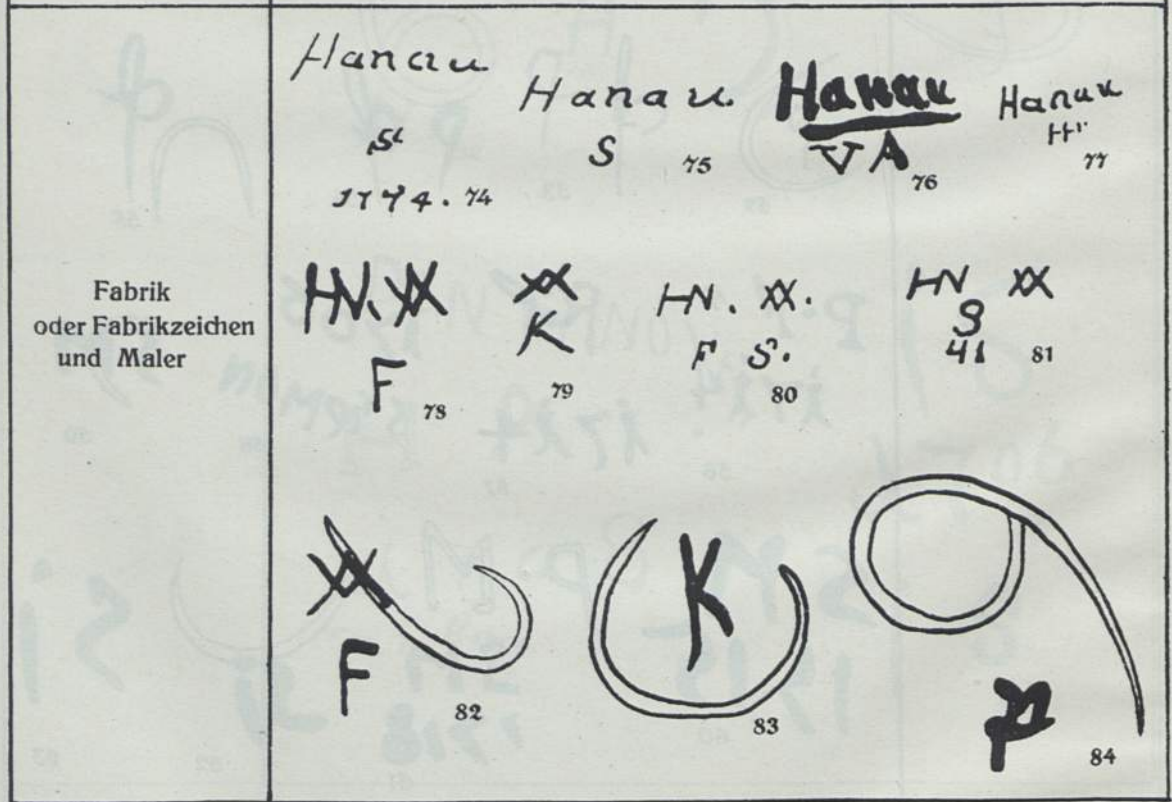 Fabrik
oder Fabrikzeichen
und Maler
Hanau
S
1774. 74
Hanau
S 75
Hanau
VA 76
Hanau
77
HN. XX
F 78
XX
K
79
HN. XX.
F S.
80
HN XX
S
41 81
XX
F
82
K
83
84